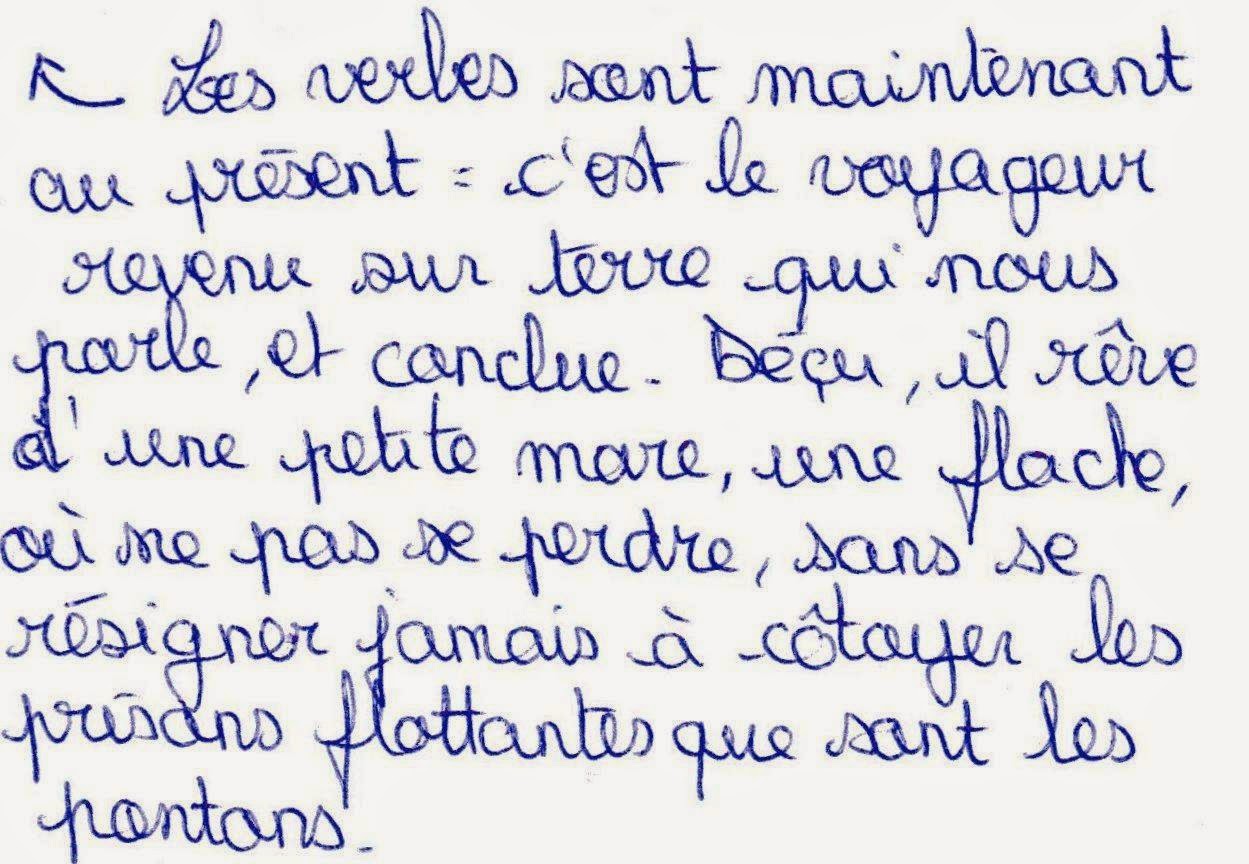 ↖ Les verbes sont maintenant
au présent = c'est le voyageur
revenu sur terre qui nous
parle, et conclue. Déçu, il rêve
d'une petite mare, une flache,
où ne pas se perdre, sans se
résigner jamais à côtoyer les
prisons flottantes que sont les
pontons.